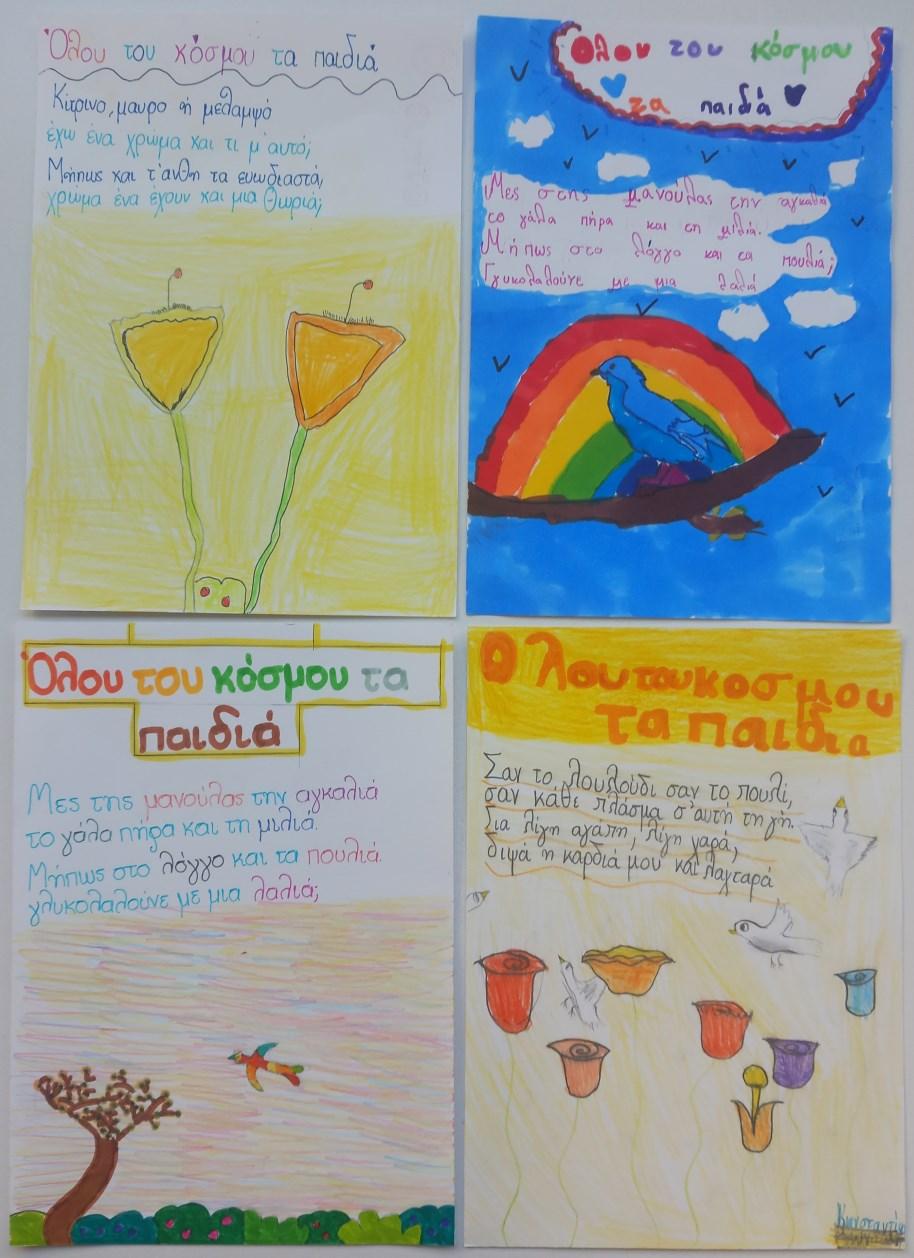 Όλου του κόσμου τα παιδιά
Κίτρινο, μαυρο ή μελαμψό
έχω ένα χρώμα και τι μ'αυτό;
Μήπως και τ'άνθη τα ευωδιαστά,
χρώμα ένα έχουν και μια θωριά;
Ολου του κόσμου
τα παιδά
Μες στης μανούλας την αγκαλιά
το γάλα πήρα και τη μιλιά.
Μήπως στο λόγγο και τα πουλιά;
Γχυκολαλούνε με μια λαλιά
Όλου του κόσμου τα
παιδιά
Μες της μανούλας την αγκαλιά
το γάλα πήρα και τη μιλιά.
Μήπως στο λόγγο και τα πουλιά.
γλυκολαλούνε με μια λαλιά;
Ο λουτουκοσμου
τα παιδια
Σαν το λουλούδι σαν το πουλι,
σαν κάθε πλάσμα σ'αυτή τη γη.
Για λίγη αγάπη, λίγη χαρά,
διψά η καρδιά μου και λαχταρά